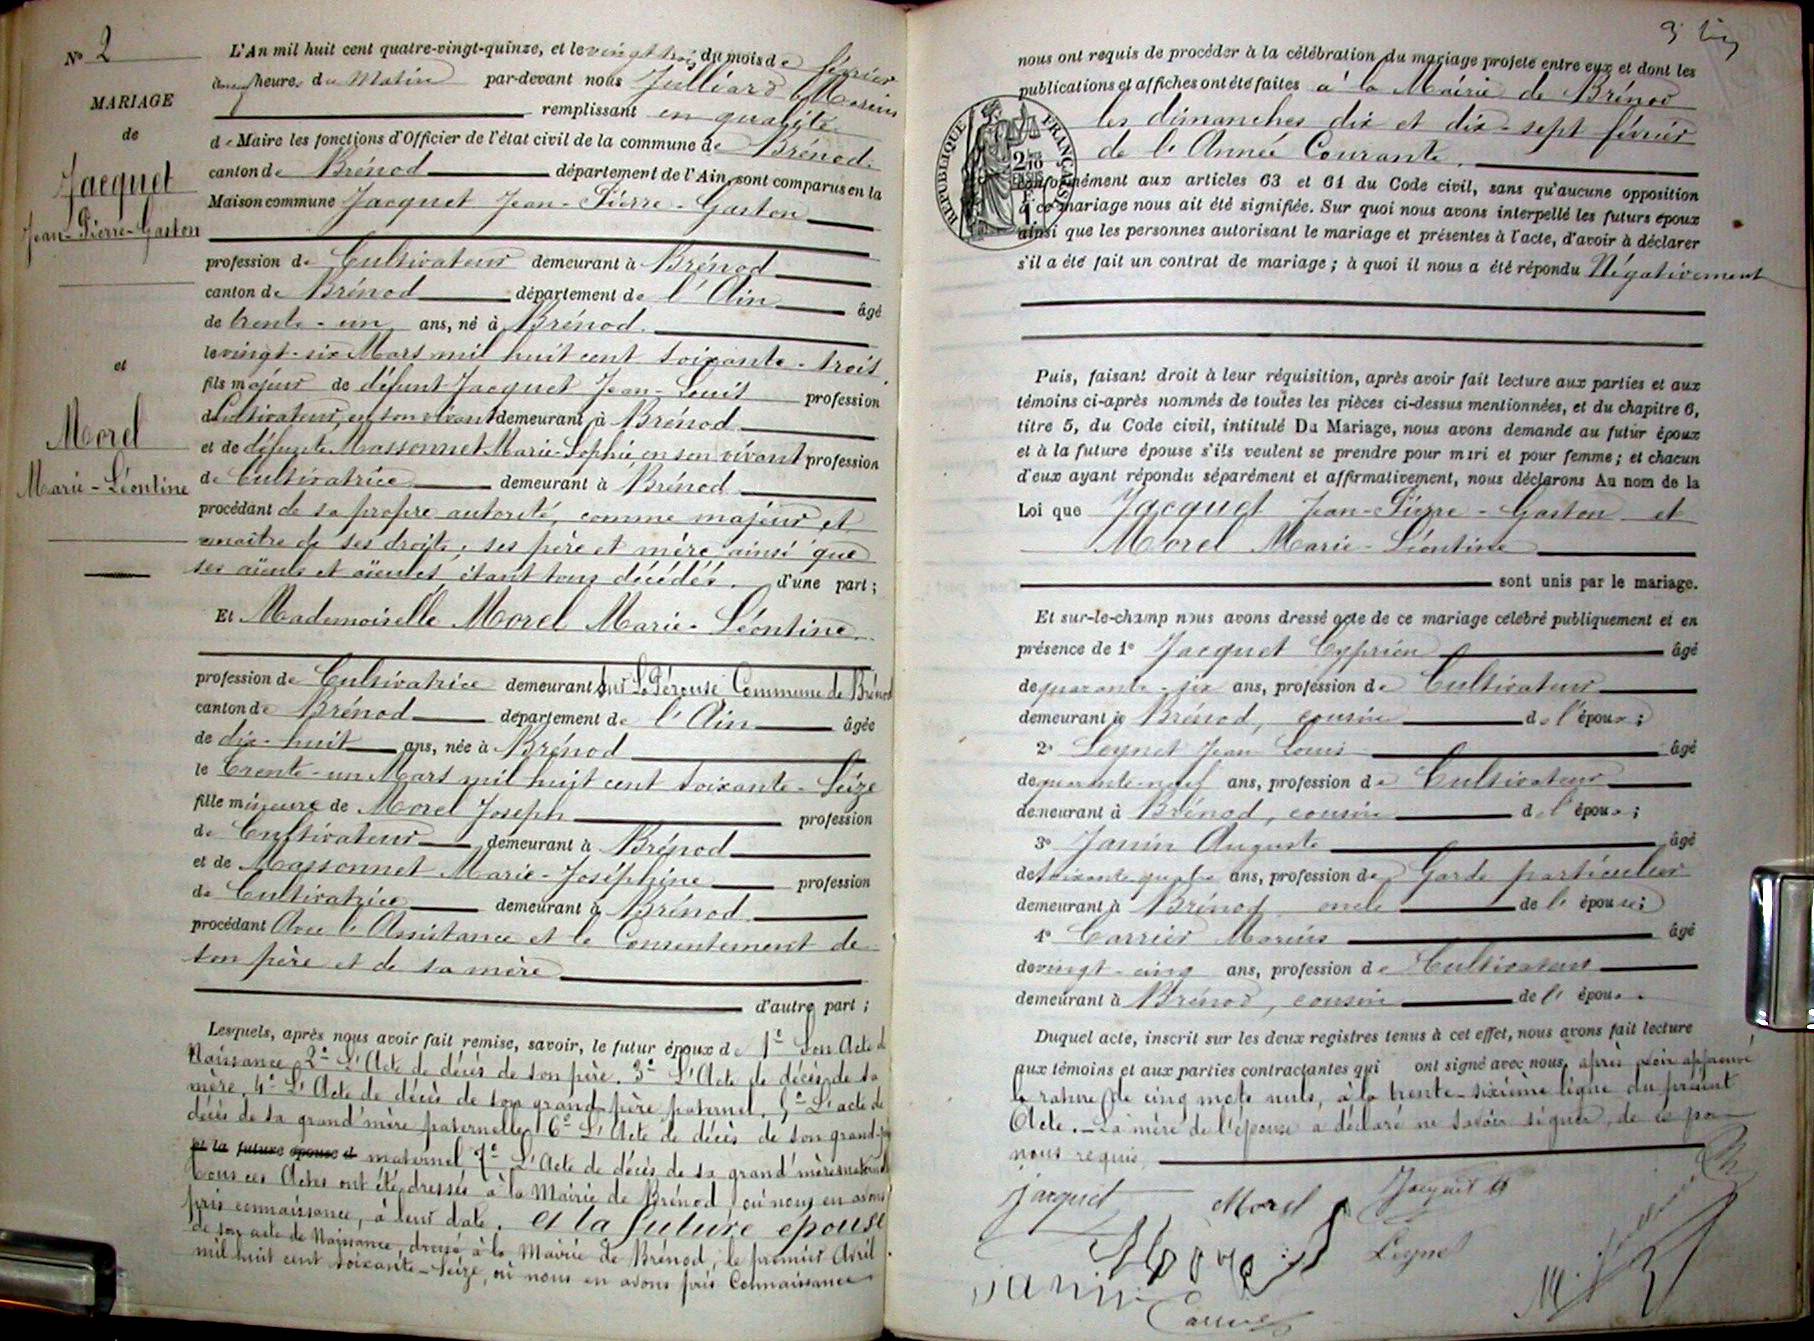 N° 2
MARIAGE
de
Jacquet
Jean-Pierre-Gaston
et
Morel
Marie-Léontine
L'An mil huit cent quatre-vingt-quinze, et le vingt trois du mois de février
heures du Matin par-devant nous Julliard Marius
remplissant en qualité
de Maire les fonctions d'Officier de l'état civil de la commune de Brénod
canton de Brénod département de l'Ain, sont comparus en la
Maison commune Jacquet Jean-Pierre-Gaston
profession de Cultivateur demeurant à Brénod
canton de Brénod département de l'Ain âgé
de trente-un ans, né à Brénod
le vingt-six Mars mil huit cent soixante-trois,
fils majeur de défunt Jacquet Jean-Louis profession
de Cultivateur, en son vivant demeurant à Brénod
et de défunte Massonnet Marie-Sophie en son vivant profession
de Cultivatrice demeurant à Brénod
procédant de sa propre autorité, comme majeur et
maître de ses droits; ses père et mère ainsi que
ses aïeuls et aïeules étant tous décédés. d'une part;
Et Mademoiselle Morel Marie-Léontine
profession de Cultivatrice demeurant sur La Pérouse Commune de Brénod
canton de Brénod département de l'Ain âgée
de dix-huit ans, née à Brénod
le trente-un Mars mil huit cent soixante-seize
fille mineure de Morel Joseph profession
de Cultivateur demeurant à Brénod
et de Massonnet Marie-Joséphine profession
de Cultivatrice demeurant à Brénod
procédant Avec l'Assistance et le Consentement de
son père et de sa mère
d'autre part;
Lesquels, après nous avoir fait remise, savoir, le futur époux de 1° Son Acte de
Naissance, 2° L'Acte de décès de son père. 3° L'Acte de décès de sa
mère. 4° L'Acte de décès de son grand père paternel. 5° L'acte de
décès de sa grand'mère paternelle. 6° L'Acte de décès de son grand-père
et la future épouse d maternel 7° L'Acte de décès de sa grand'mère maternelle
tous ces Actes ont été dressés à la Mairie de Brénod, où nous en avons
pris connaissance, à leur date. et la future épouse
de son acte de Naissance, dressé à la Mairie de Brénod, le premier Avril
mil huit cent soixante-seize, où nous en avons pris Connaissance
nous ont requis de procéder à la célébration du mariage projeté entre eux et dont les
publications et affiches ont été faites à la Mairie de Brénod
les dimanches dix et dix-sept février
de l'Année Courante.
RÉPUBLIQUE FRANÇAISE
conformément aux articles 63 et 64 du Code civil, sans qu'aucune opposition
à ce mariage nous ait été signifiée. Sur quoi nous avons interpellé les futurs époux
ainsi que les personnes autorisant le mariage et présentes à l'acte, d'avoir à déclarer
s'il a été fait un contrat de mariage; à quoi il nous a été répondu Négativement
Puis, faisant droit à leur réquisition, après avoir fait lecture aux parties et aux
témoins ci-après nommés de toutes les pièces ci-dessus mentionnées, et du chapitre 6,
titre 5, du Code civil, intitulé Du Mariage, nous avons demandé au futur époux
et à la future épouse s'ils veulent se prendre pour mari et pour femme; et chacun
d'eux ayant répondu séparément et affirmativement, nous déclarons Au nom de la
Loi que Jacquet Jean-Pierre-Gaston et
Morel Marie-Léontine
sont unis par le mariage.
Et sur-le-champ nous avons dressé acte de ce mariage célébré publiquement et en
présence de 1° Jacquet Cyprien âgé
de quarante-six ans, profession de Cultivateur
demeurant à Brénod, cousin de l'époux;
2° Leynet Jean Louis âgé
de quarante-neuf ans, profession de Cultivateur
demeurant à Brénod, cousin de l'époux;
3° Janin Auguste âgé
de soixante quatre ans, profession de Garde particulier
demeurant à Brénod oncle de l'épouse;
4° Carrier Marius âgé
de vingt-cinq ans, profession de Cultivateur
demeurant à Brénod, cousin de l'épou
Duquel acte, inscrit sur les deux registres tenus à cet effet, nous avons fait lecture
aux témoins et aux parties contractantes qui ont signé avec nous, après avoir approuvé
la rature de cinq mots nuls, à la trente-sixième ligne du présent
Acte. - La mère de l'épouse a déclaré ne savoir signer, de ce par
nous requis.
Jacquet Morel Jacquet
Morel Leynet
Janin
Carrier